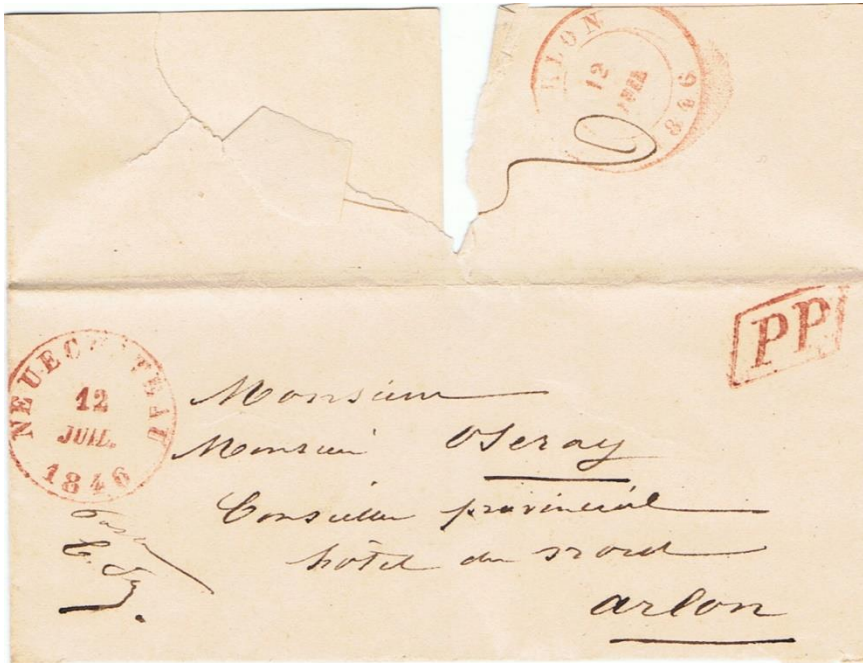 RLON
12
846
PP
NEUFCHATEAU
12
JUIL.
1846
Monsieur
Monsieur Oseray
Conseiller provincial
hôtel du nord
arlon